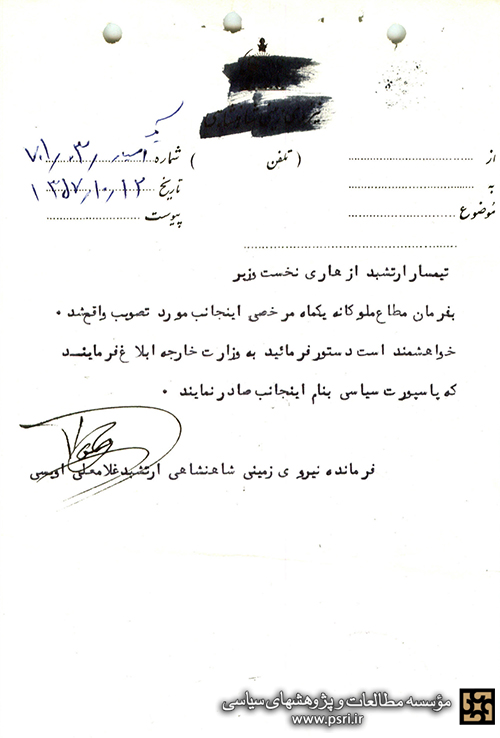 از
( تلفن )
شماره ۷۰۱/۰۳/
به
تاریخ ۱۳۵۷/۱۰/۱۲
موضوع
پیوست
تیمسار ارتشبد ازهاری نخست وزیر
بفرمان مطاع ملوکانه یکماه مرخصی اینجانب مورد تصویب واقع شد .
خواهشمند است دستور فرمائید به وزارت خارجه ابلاغ فرمایند
که پاسپورت سیاسی بنام اینجانب صادر نمایند .
فرمانده نیروی زمینی شاهنشاهی ارتشبد غلامعلی اویسی
مؤسسه مطالعات و پژوهشهای سیاسی
www.psri.ir